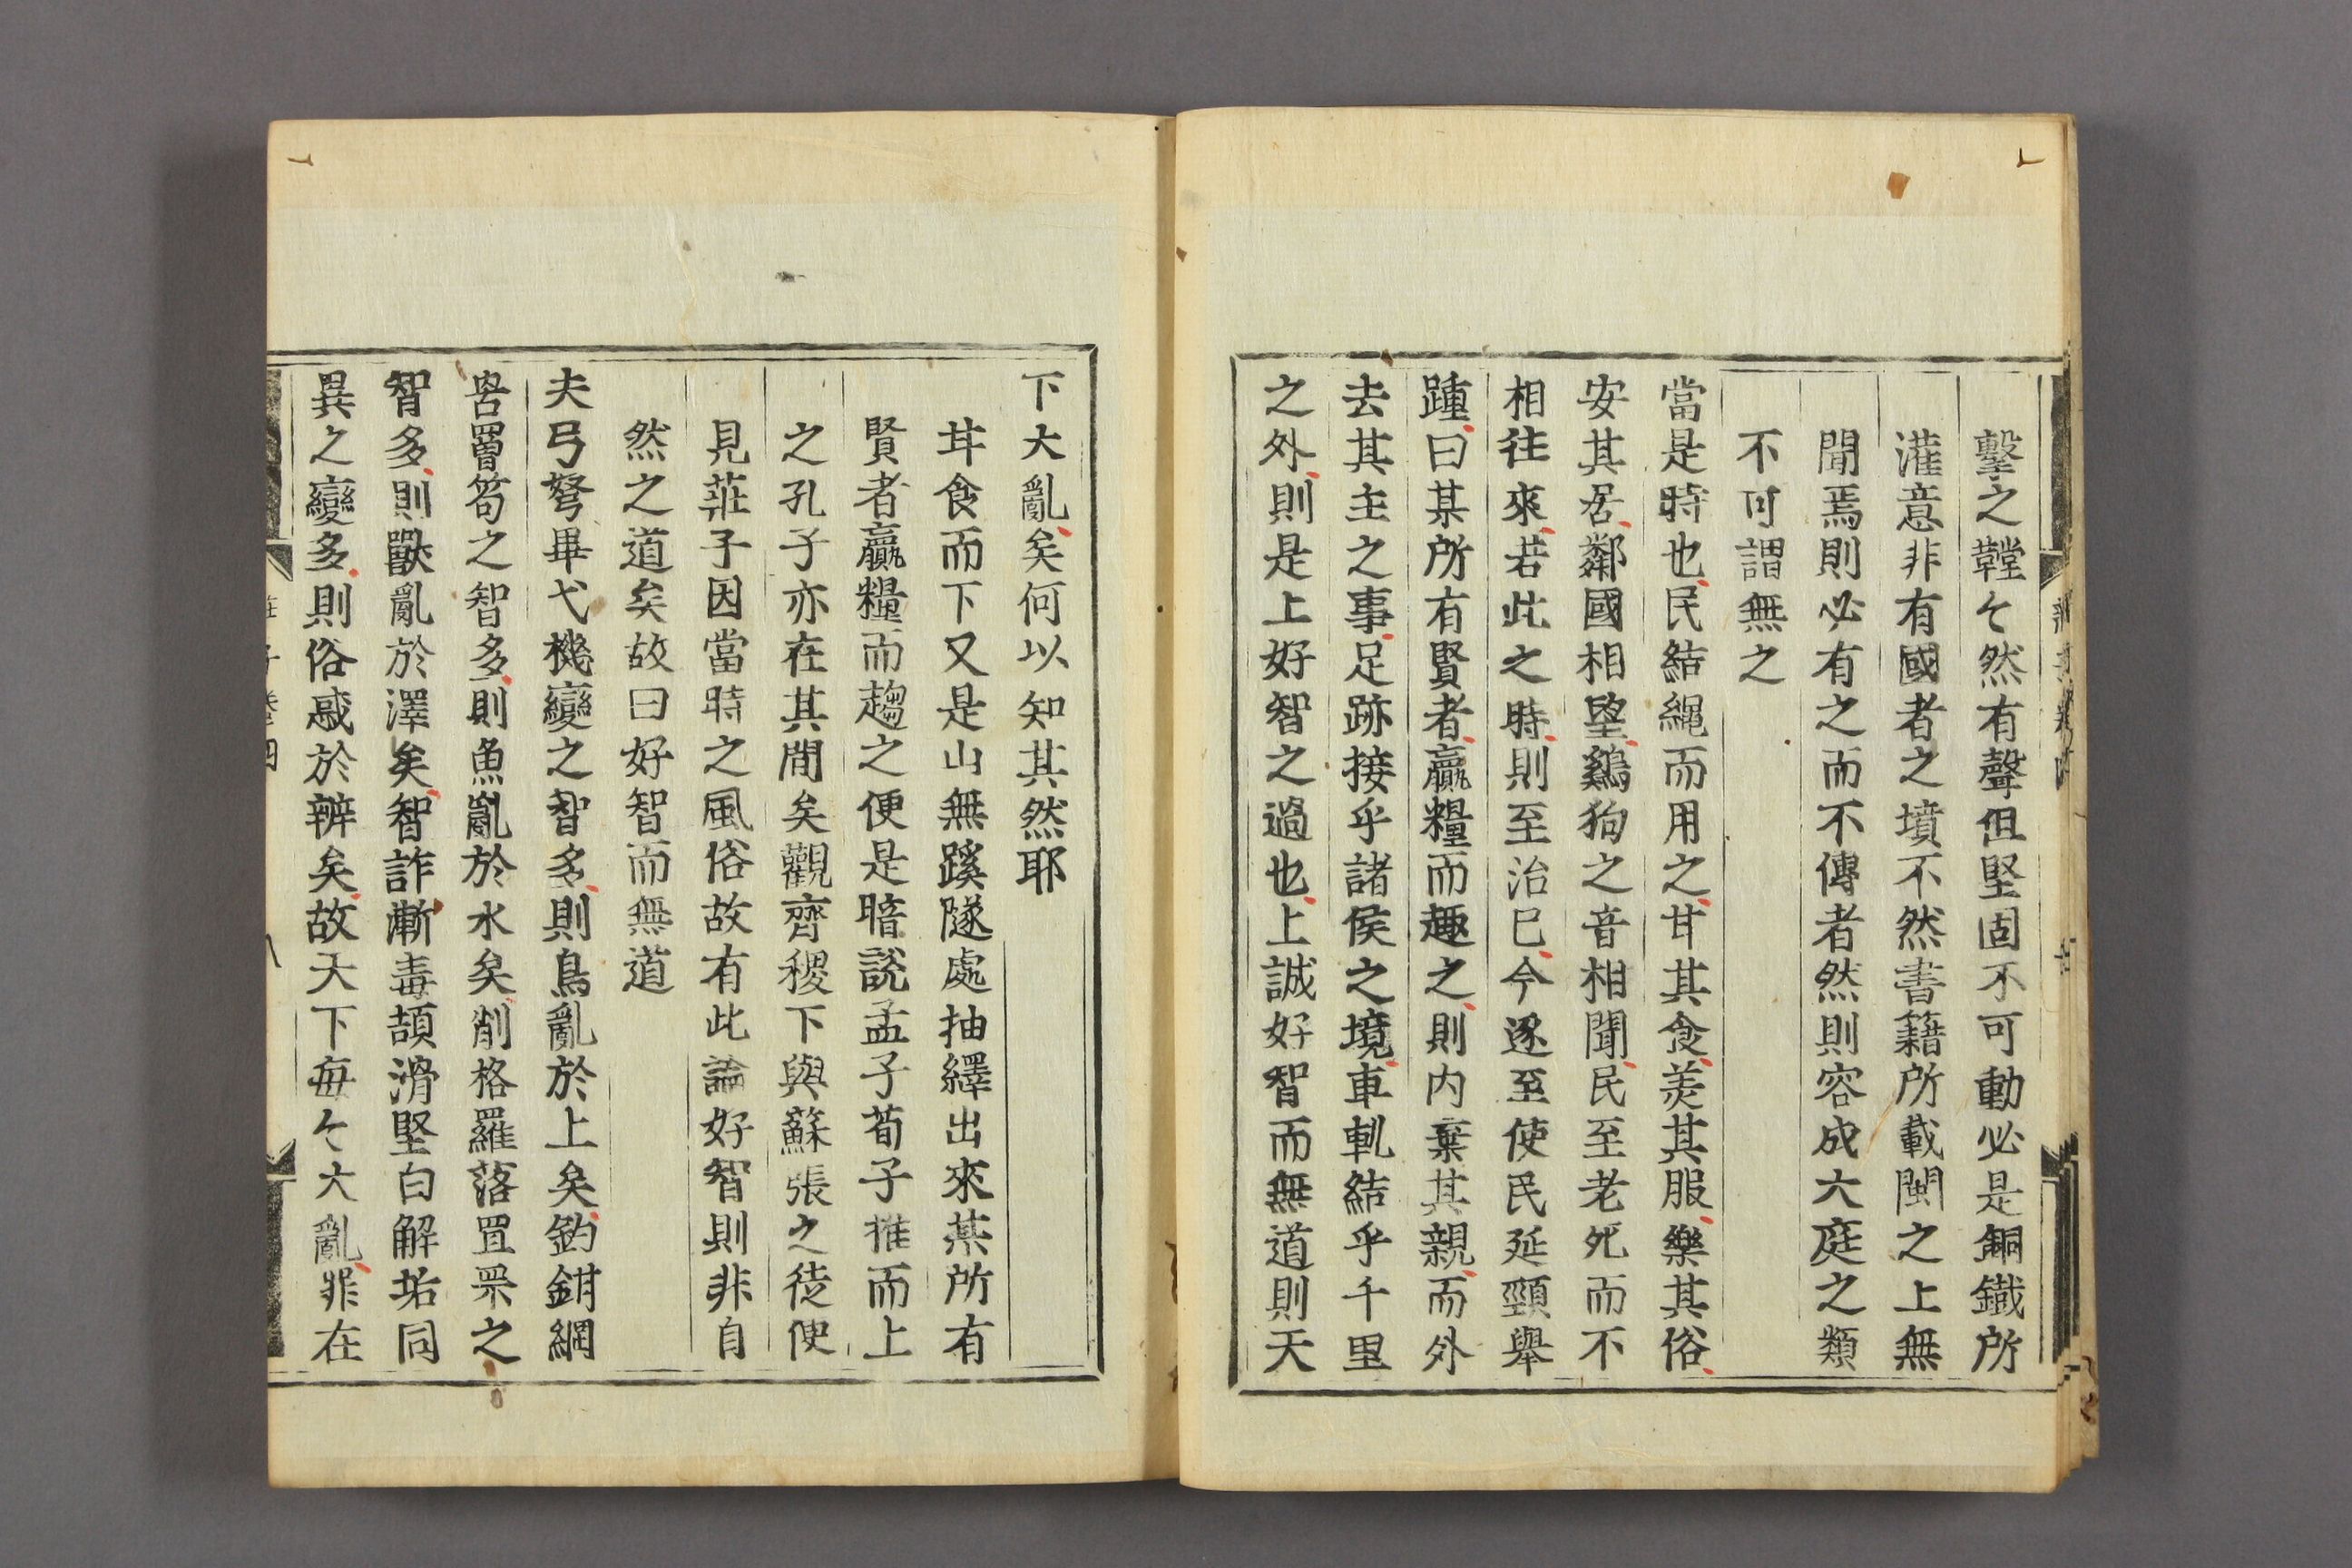 擊之鞺々然有聲但堅固不可動必是銅鐡所
灌意非有國者之墳不然書籍所載閩之上無
聞焉則必有之而不傳者然則容成大庭之類
不可謂無之
當是時也民結繩而用之甘其食羙其服樂其俗
安其居鄰國相望鷄狗之音相聞民至老死而不
相往來若此之時則至治巳今遂至使民延頸舉
踵曰某所有賢者贏糧而趣之則内棄其親而外
去其主之事足跡接乎諸侯之境車軌結乎千里
之外則是上好智之過也上誠好智而無道則天
下大亂矣何以知其然耶
茸食而下又是山無蹊隧處抽繹出來某所有
賢者贏糧而趨之便是暗說孟子荀子推而上
之孔子亦在其間矣觀齊稷下與蘇張之徒便
見莊子因當時之風俗故有此論好智則非自
然之道矣故曰好智而無道
夫弓弩畢弋機變之智多則鳥亂於上矣鈎鉗網
罟罾笱之智多則魚亂於水矣削格羅落罝罘之
智多則獸亂於澤矣智詐漸毒頡滑堅白解垢同
異之變多則俗惑於辨矣故天下每々大亂罪在
莊子卷四
八